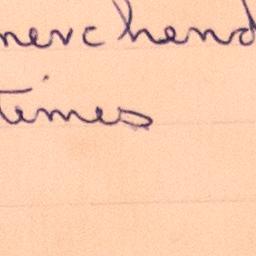 merchand
times